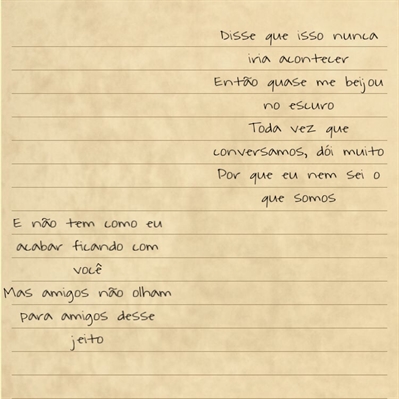 Disse que isso nunca
iria acontecer
Então quase me beijou
no escuro
Toda vez que
conversamos, dói muito
Por que eu nem sei o
que somos
E não tem como eu
acabar ficando com
você
Mas amigos não olham
para amigos desse
jeito